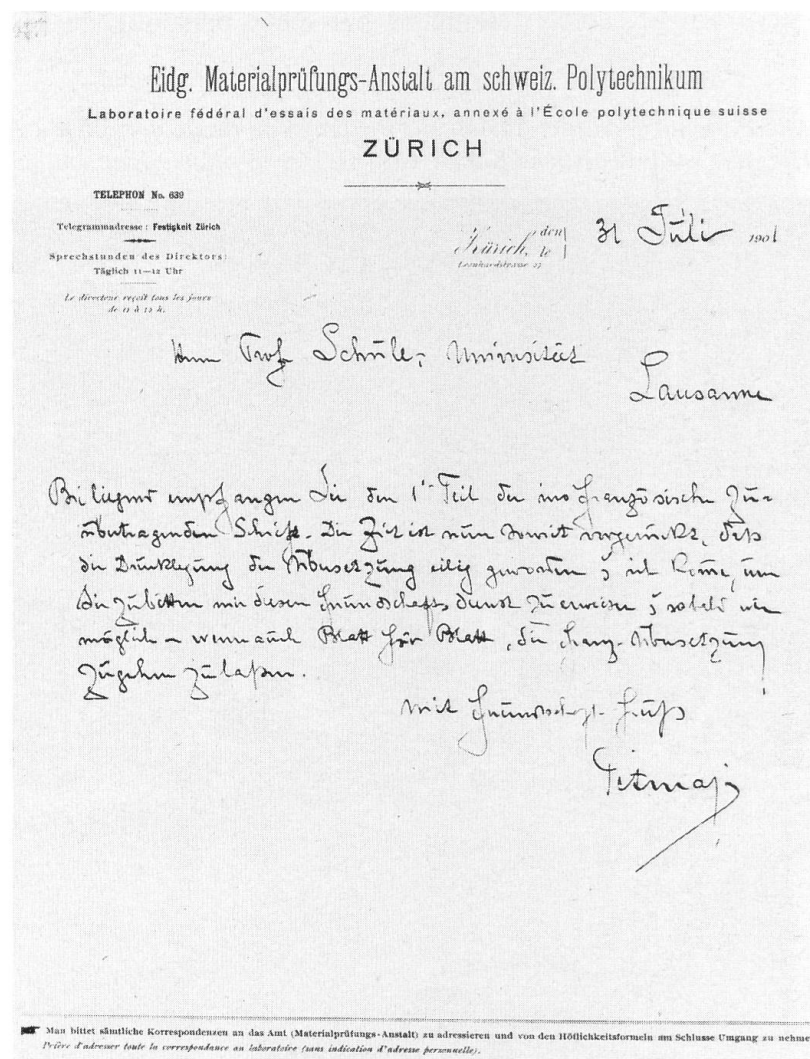 Eidg. Materialprüfungs-Anstalt am schweiz. Polytechnikum
Laboratoire fédéral d'essais des matériaux, annexé à l'École polytechnique suisse
ZÜRICH
TELEPHON No. 639
Telegrammadresse: Festigkeit Zürich
Sprechstunden des Direktors:
Täglich 11—12 Uhr
Le directeur reçoit tous les jours
de 11 à 12 h.
Zürich, den/le 31 Juli 1901
Leonhardstrasse 27
Herrn Prof Schüle, Universität
Lausanne
Beiliegend empfangen Sie den 1ten Teil der ins französische zu-
übertragenden Schrift. Die Zeit ist nun soweit vorgerückt, daß
die Drucklegung der Übersetzung eilig geworden & ich komme, um
Sie zu bitten mir diesen Freundschaftsdienst zu erweisen & sobald wie
möglich – wenn auch Blatt für Blatt, die franz. Übersetzung
zugehen zu laßen.
Mit freundschaftl. Gruß
Tetmajer
Man bittet sämtliche Korrespondenzen an das Amt (Materialprüfungs-Anstalt) zu adressieren und von den Höflichkeitsformeln am Schlusse Umgang zu nehmen
Prière d'adresser toute la correspondance au laboratoire (sans indication d'adresse personnelle).